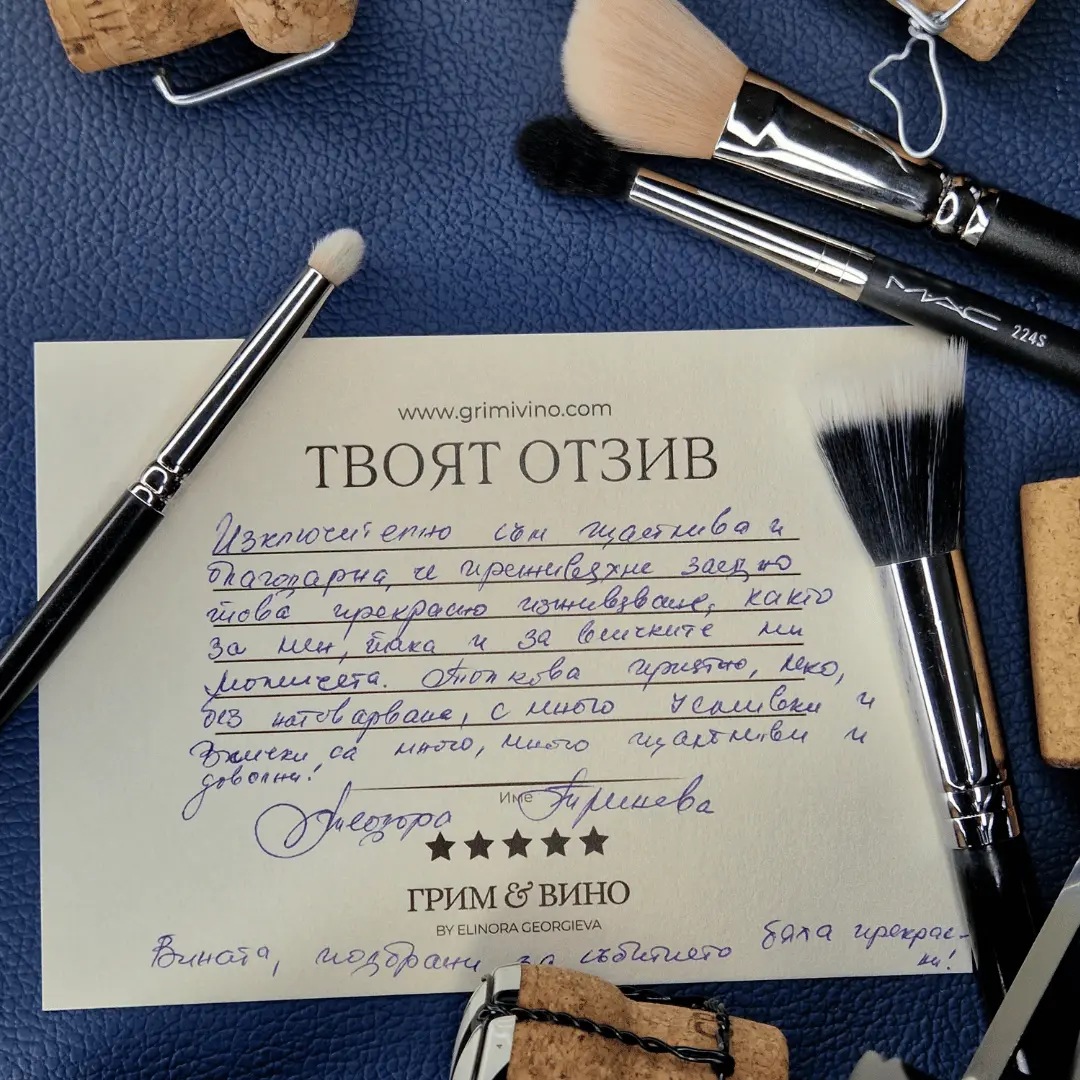 MAC 224S
www.grimivino.com
ТВОЯТ ОТЗИВ
Изключително съм щастлива и
благодарна, че преживяхме заедно
това прекрасно изживяване, както
за мен, така и за всичките ми
момичета. Толкова приятно, леко,
без натоварване, с много усмивки и
всички са много, много щастливи и
доволни!
Име
Теодора
★★★★★
ГРИМ & ВИНО
BY ELINORA GEORGIEVA
Вината, подбрани за събитието бяха прекрас-
ни!